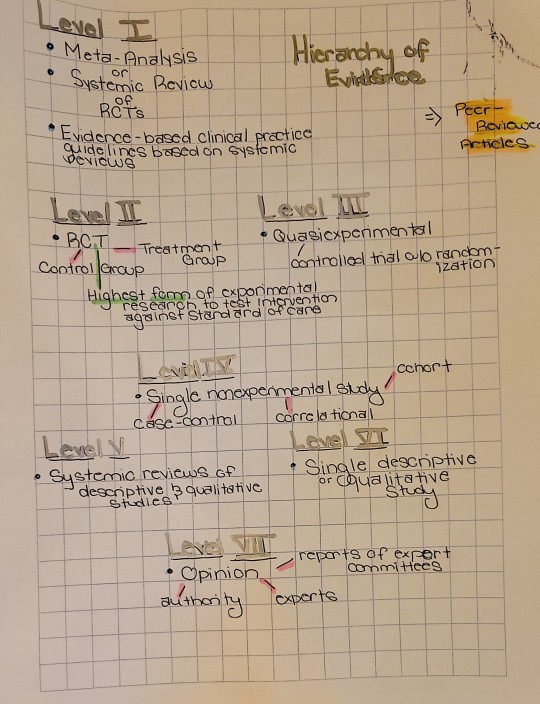 Level I
• Meta-Analysis
or
• Systemic Review
of
RCTs
• Evidence-based clinical practice
guidelines based on systemic
reviews
Hierarchy of
Evidence
=> Peer-
Reviewed
Articles
Level II
• RCT — Treatment
Group
Control Group
Highest form of experimental
research to test intervention
against standard of care
Level III
• Quasiexperimental
controlled trial w/o random-
ization
Level IV
• Single nonexperimental study
cohort
case-control
correlational
Level V
• Systemic reviews of
descriptive & qualitative
studies
Level VI
• Single descriptive
or qualitative
study
Level VII
• Opinion
reports of expert
committees
authority
experts